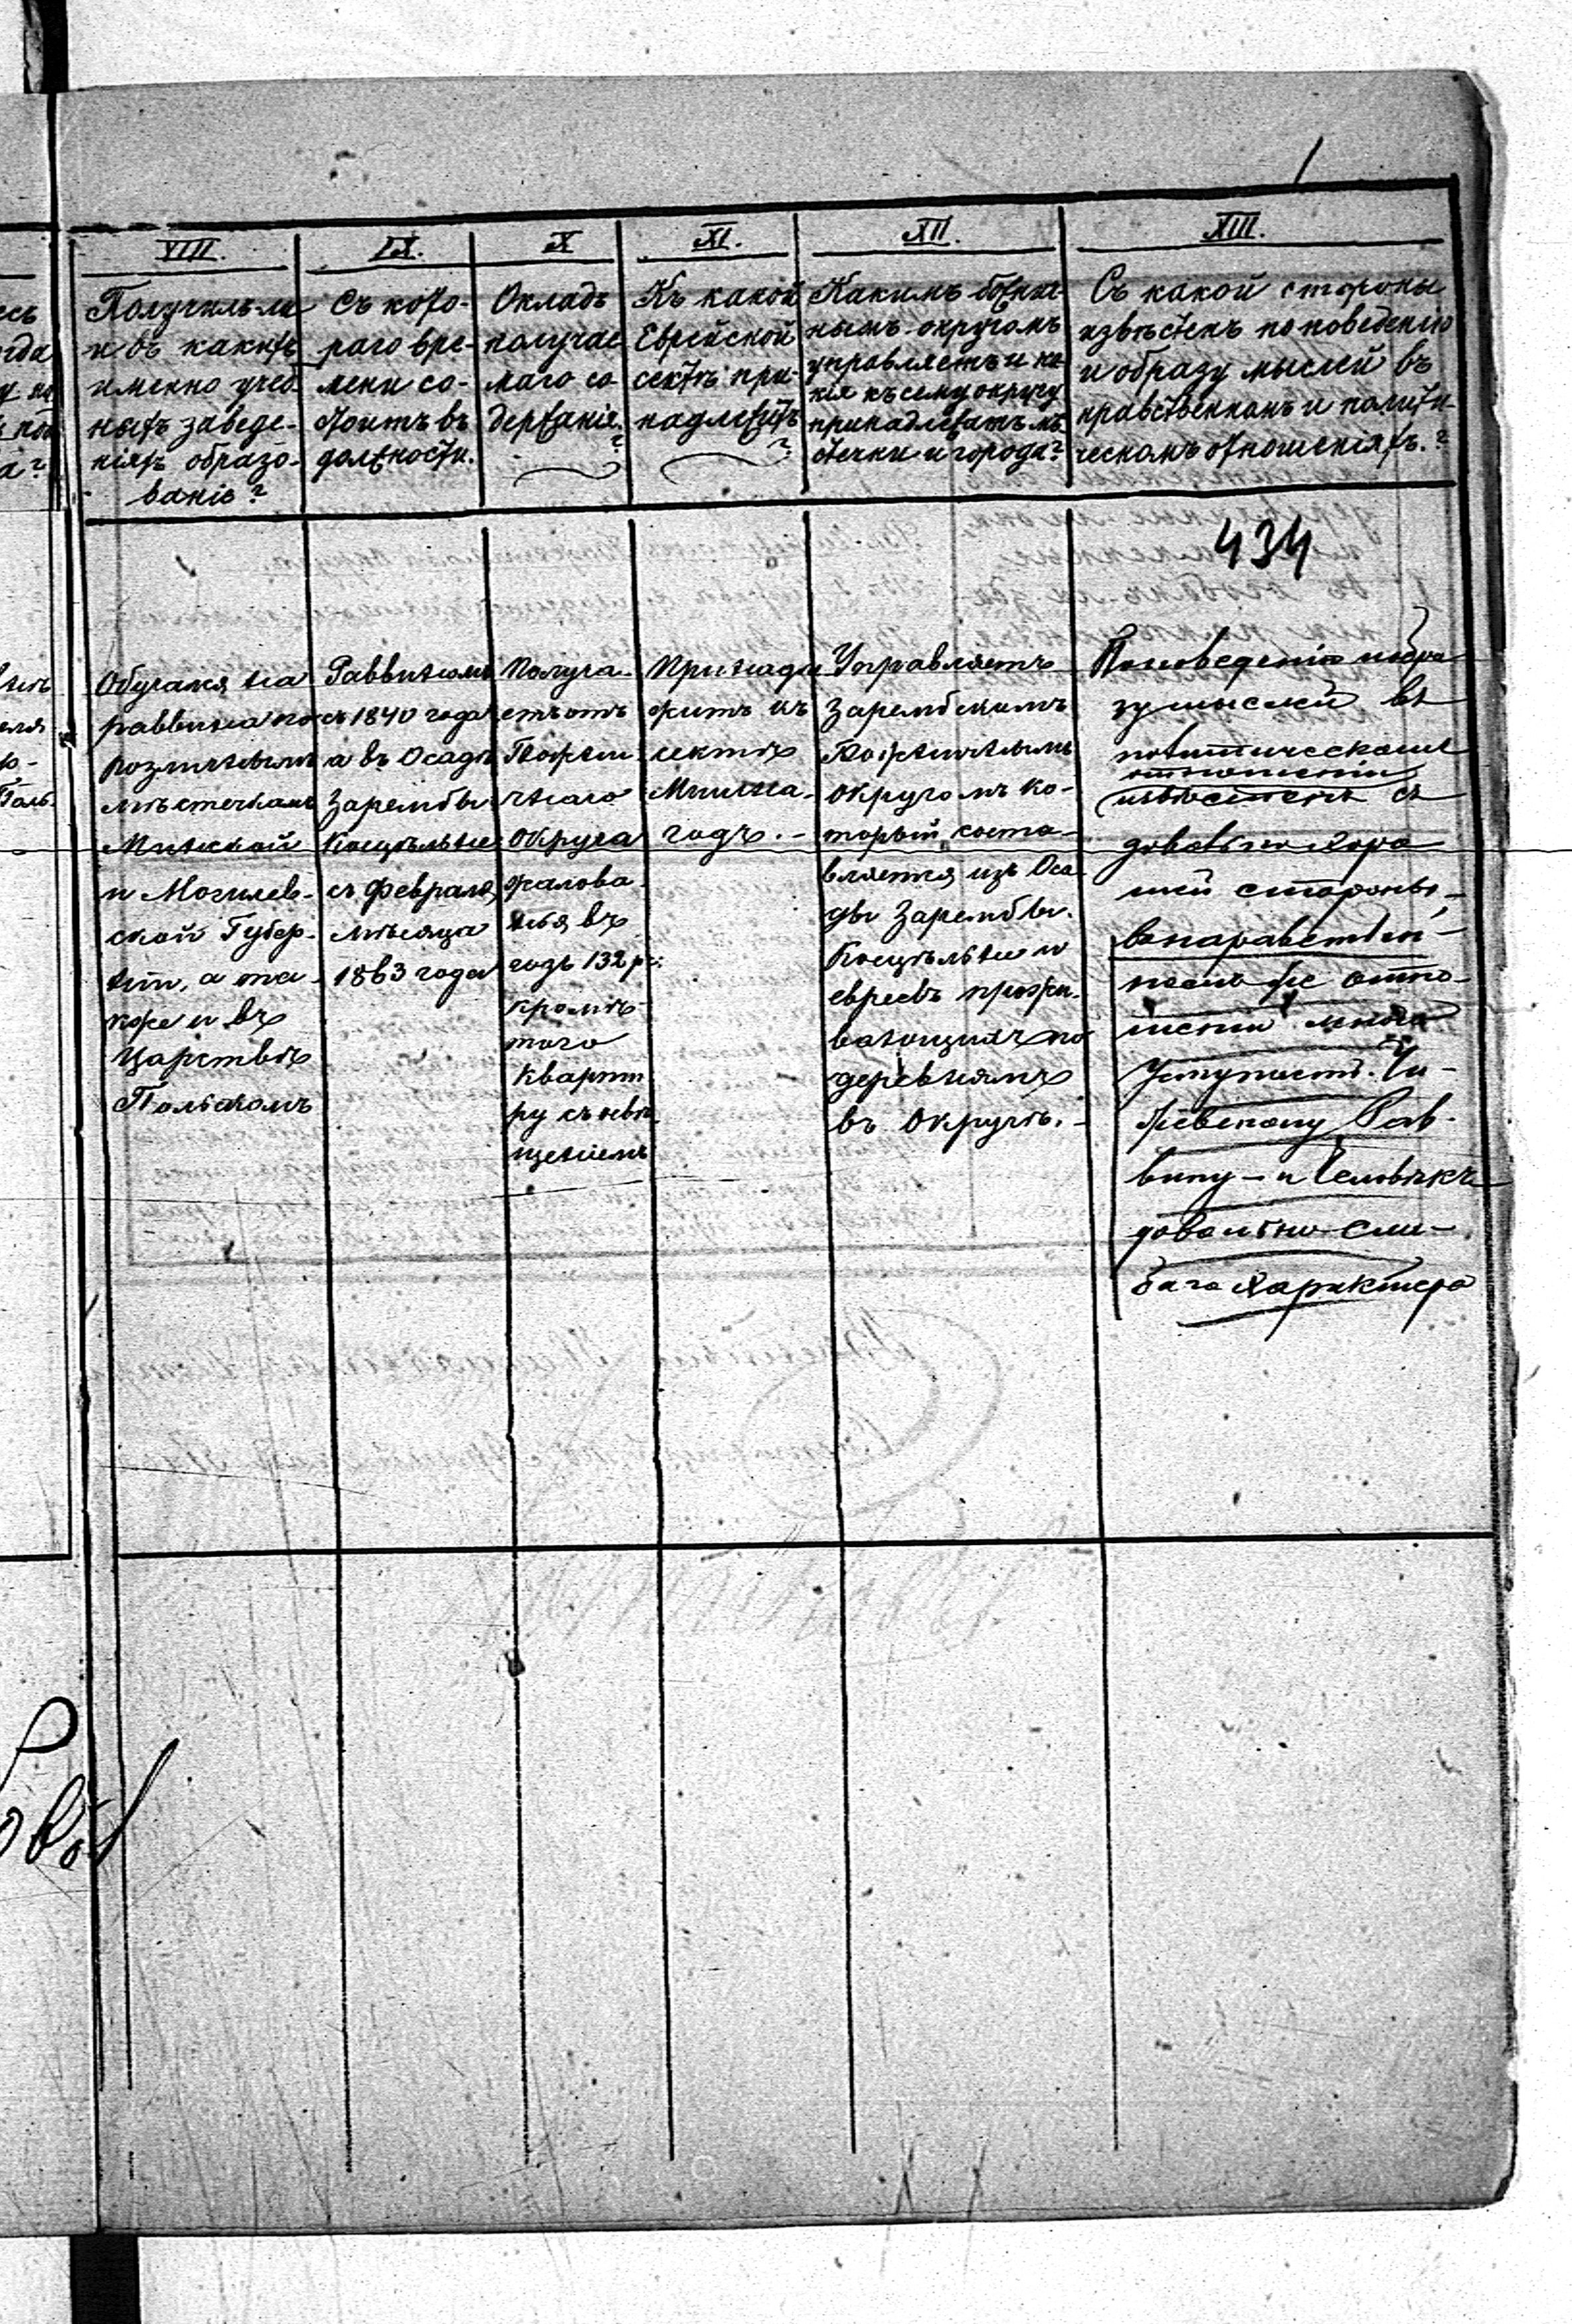 1
VIII.
Получилъ-ли
и въ какихъ
именно учеб-
ныхъ заведе-
ніяхъ образо-
ваніе?
IX.
Съ кото-
раго вре-
мени со-
стоитъ въ
должности.
X
Окладъ
получае
маго со
держанія.
?
XI.
Къ какой
Еврейской
сектѣ при-
надлежитъ
?
XII.
Какимъ
нымъ округомъ
управляетъ и ка
кія къ сему округу
принадлежатъ мѣ
стечки и города?
XIII.
Съ какой стороны
извѣстенъ по поведенію
и образу мыслей въ
нравственномъ и полити-
ческомъ отношеніяхъ.?
434
Обучался на
раввина по
розличнымъ
мѣстечкамъ
Минской
и Могилев-
ской Губер-
ніи, а та-
кже и въ
Царствѣ
Польскомъ
Раввиномъ
съ 1840 года
а въ Осадѣ
Зарембы
Косцѣльне
съ Февраля
мѣсяца
1863 года
Получа-
етъ отъ
Божни
чнаго
Округа
жалова-
нья въ
годъ 132 р:
кромѣ
того
кварти
ру съ освѣ
щеніемъ
Принадле
житъ къ
сектѣ
Мисна-
годъ. -
Управляетъ
Зарембскимъ
Божничнымъ
округомъ ко-
торый соста-
вляется изъ Оса-
ды Зарембы
Косцѣльне и
евреевъ прожи-
вающихъ по
деревнямъ
въ Округѣ. -
По поведенію и обра
зу мыслей въ
политическомъ
отношеніи
извѣстенъ съ
довольно хоро
шей стороны,
въ нравствен-
номъ же отно-
шеніи много
Уступаетъ Чи-
жевскому Рав-
вину - и Человѣкъ
довольно сла-
баго Характера